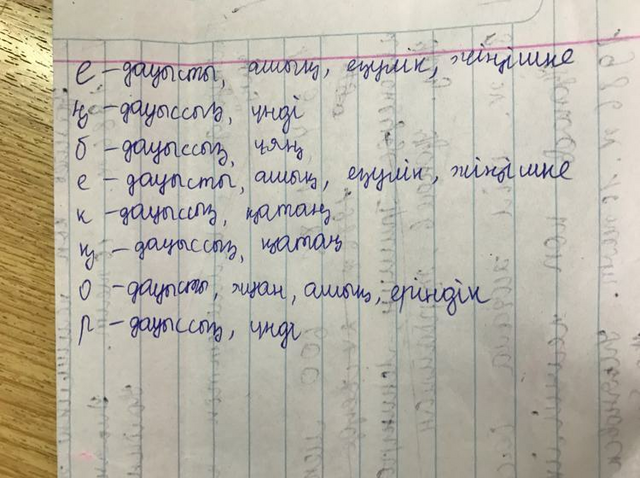 е – дауысты, ашық, езулік, жіңішке
ң – дауыссыз, үнді
б – дауыссыз, ұяң
е – дауысты, ашық, езулік, жіңішке
к – дауыссыз, қатаң
қ – дауыссыз, қатаң
о – дауысты, жуан, ашық, еріндік
р – дауыссыз, үнді